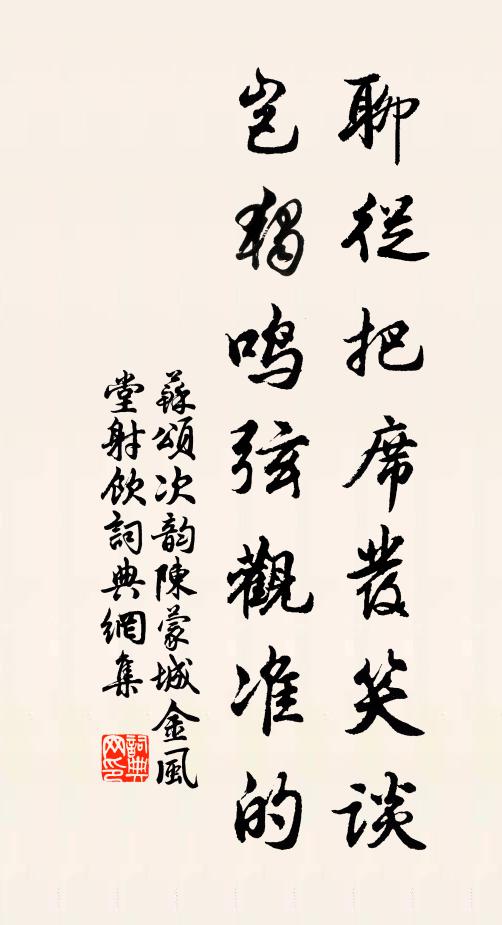 聊從把席發笑談
豈独鳴弦觀准的
蘇頌次韵陳蒙城金風
堂射飲詞典網集
詞典
网印